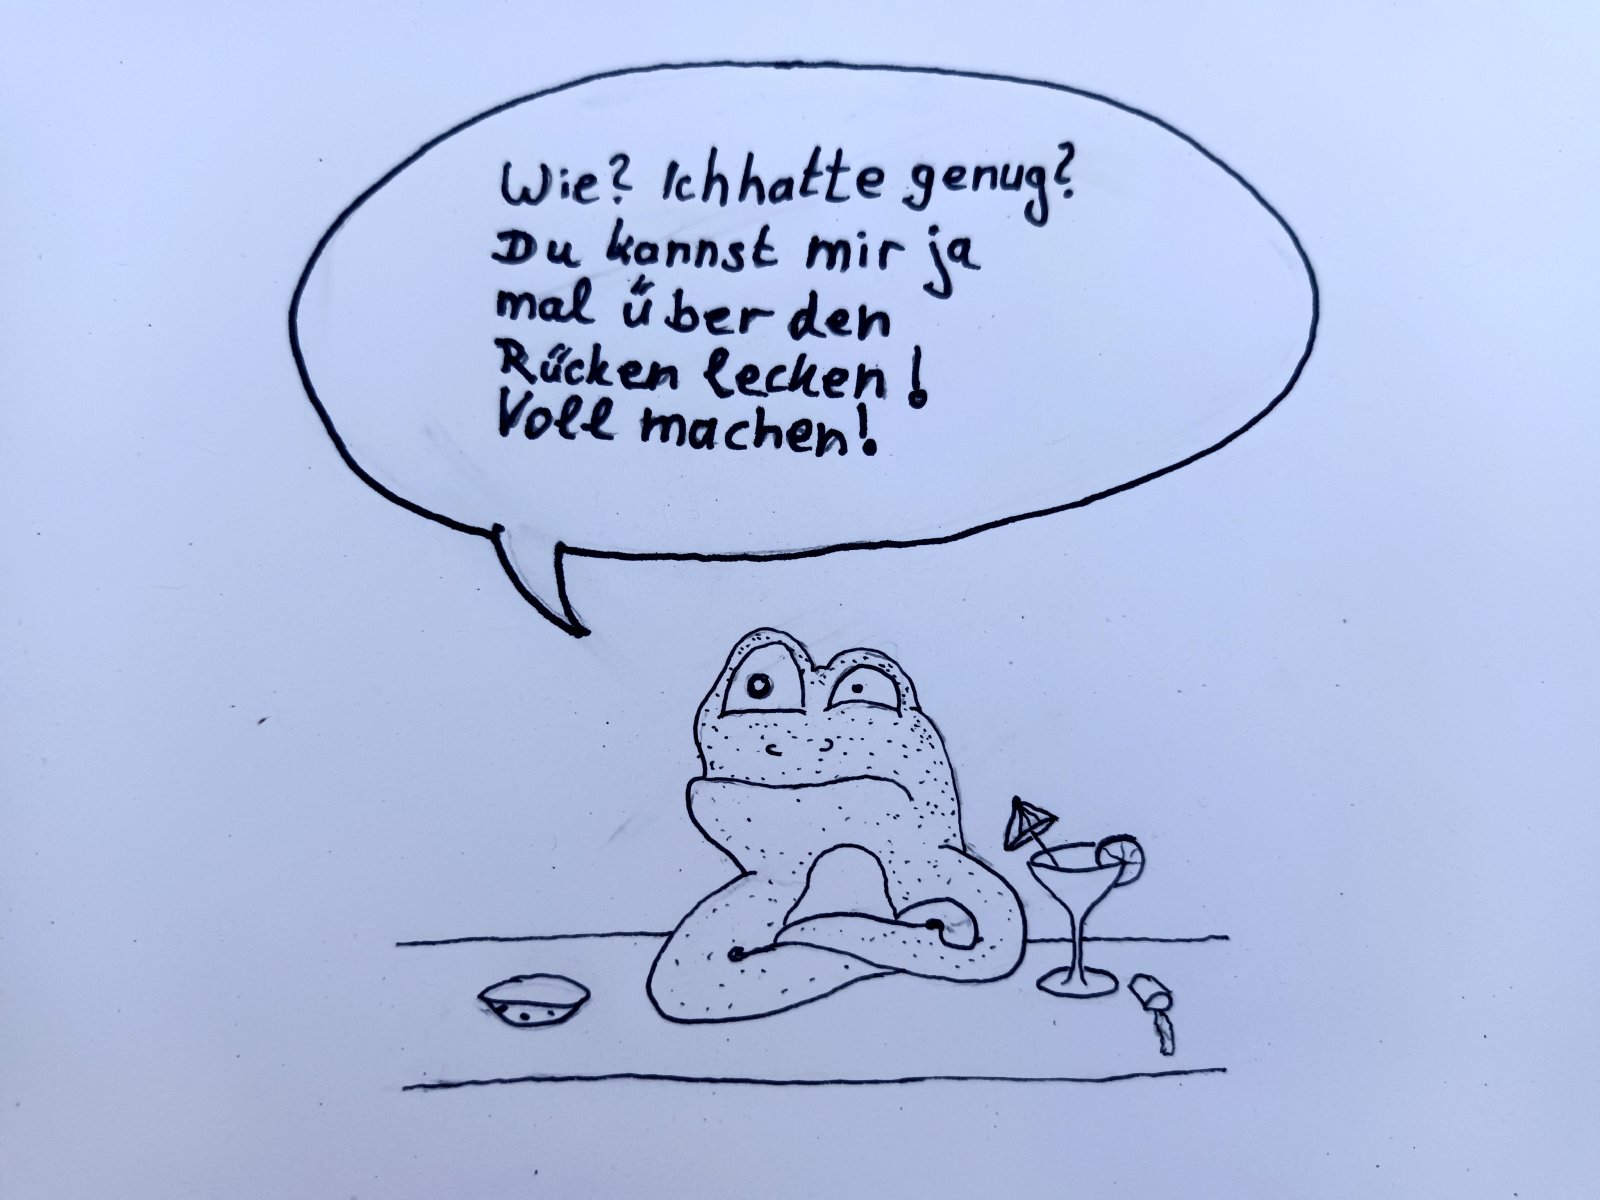 Wie? Ich hatte genug?
Du kannst mir ja
mal über den
Rücken lecken!
Voll machen!